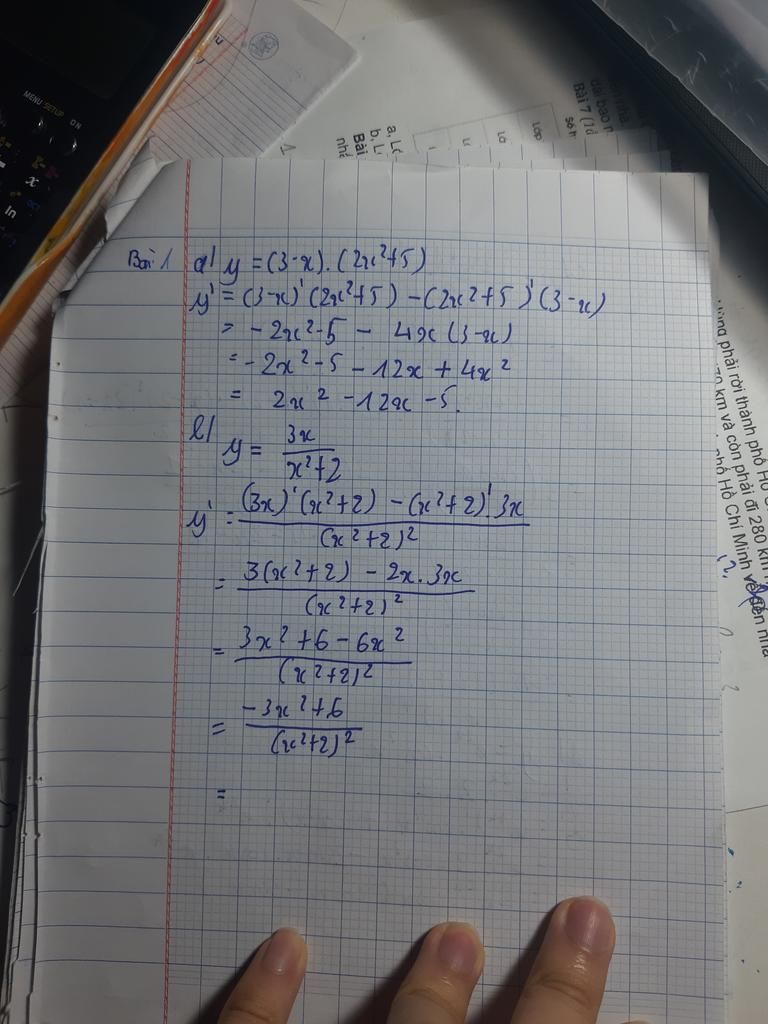 MENU SETUP ON
x
ln
a, L
b, L
Bài
Lớp
Bài 7 (1đ
số h
Bài 1 a/ y = (3-x).(2x²+5)
y' = (3-x)'(2x²+5) - (2x²+5)'(3-x)
= -2x²-5 - 4x(3-x)
= -2x²-5 - 12x + 4x²
= 2x² - 12x - 5.
b/ y = 3x / x²+2
y' = (3x)'(x²+2) - (x²+2)'.3x / (x²+2)²
= 3(x²+2) - 2x.3x / (x²+2)²
= 3x²+6-6x² / (x²+2)²
= -3x²+6 / (x²+2)²
=
phải rời thành phố Hồ
km và còn phải đi 280 km
Hồ Chí Minh về đến nhà